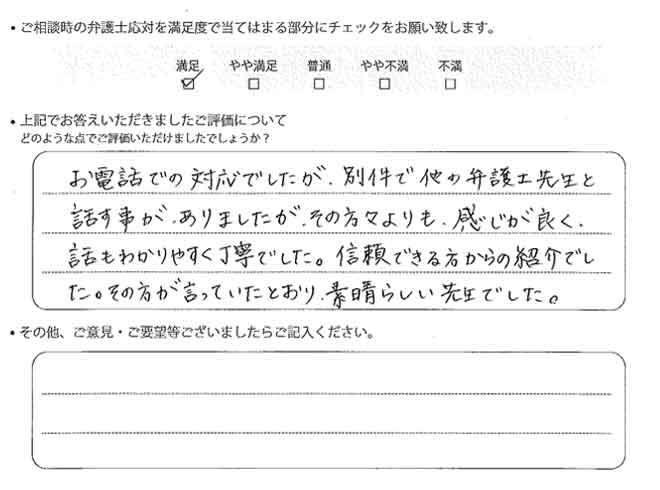 ・ご相談時の弁護士応対を満足度で当てはまる部分にチェックをお願い致します。
満足 やや満足 普通 やや不満 不満
☑ □ □ □ □
・上記でお答えいただきましたご評価について
どのような点でご評価いただけましたでしょうか？
お電話での対応でしたが、別件で他の弁護士先生と
話す事が、ありましたが、その方々よりも、感じが良く、
話もわかりやすく丁寧でした。信頼できる方からの紹介でし
た。その方が言っていたとおり、素晴らしい先生でした。
・その他、ご意見・ご要望等ございましたらご記入ください。